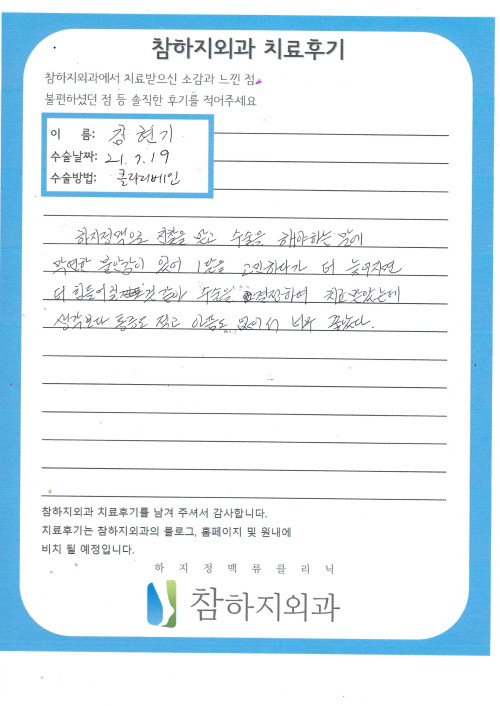 참하지외과 치료후기
참하지외과에서 치료받으신 소감과 느낀 점
불편하셨던 점 등 솔직한 후기를 적어주세요
이 름: 김현기
수술날짜: 21. 7. 19
수술방법: 클라리베인
하지정맥으로 진찰을 받고 수술을 해야하는 맘에
막연한 불안감이 있어 고민하다가 더 늦어지면
더 힘들어질 것 같아 수술을 결정하여 치료 받았는데
생각보다 통증도 적고 아픔도 없어서 너무 좋았다.
참하지외과 치료후기를 남겨 주셔서 감사합니다.
치료후기는 참하지외과의 블로그, 홈페이지 및 원내에
비치 될 예정입니다.
하지정맥류클리닉
참하지외과